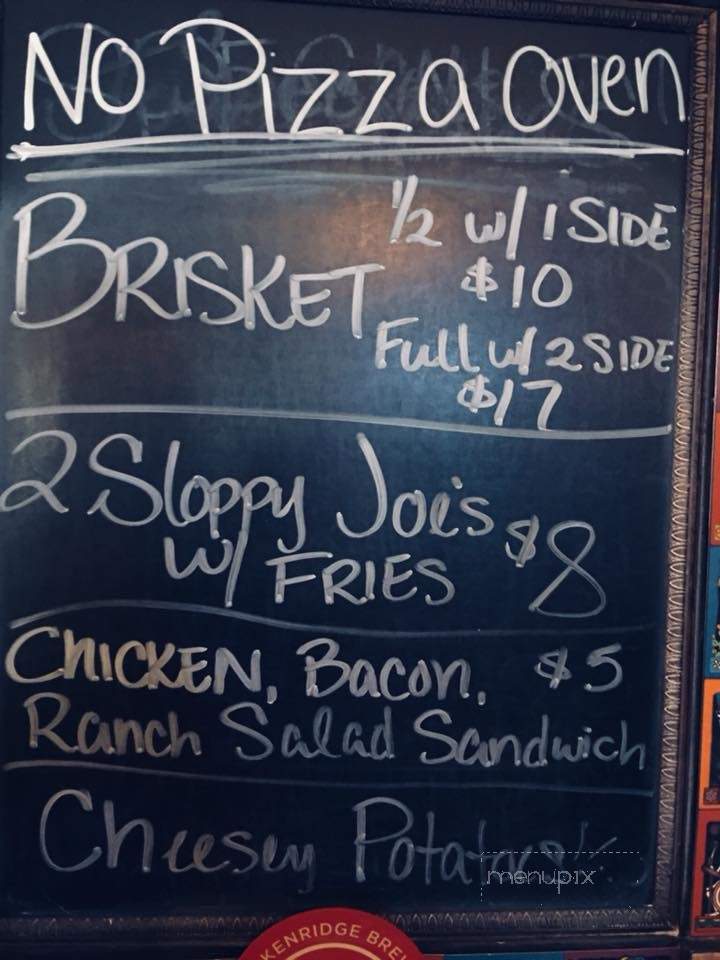 No Pizza Oven
BRISKET
1/2 w/ 1 SIDE
$10
Full w/ 2 SIDE
$17
2 Sloppy Joe's
w/ FRIES $8
CHICKEN, Bacon, $5
Ranch Salad Sandwich
Cheesey Potatoes
menupix
KENRIDGE BRE